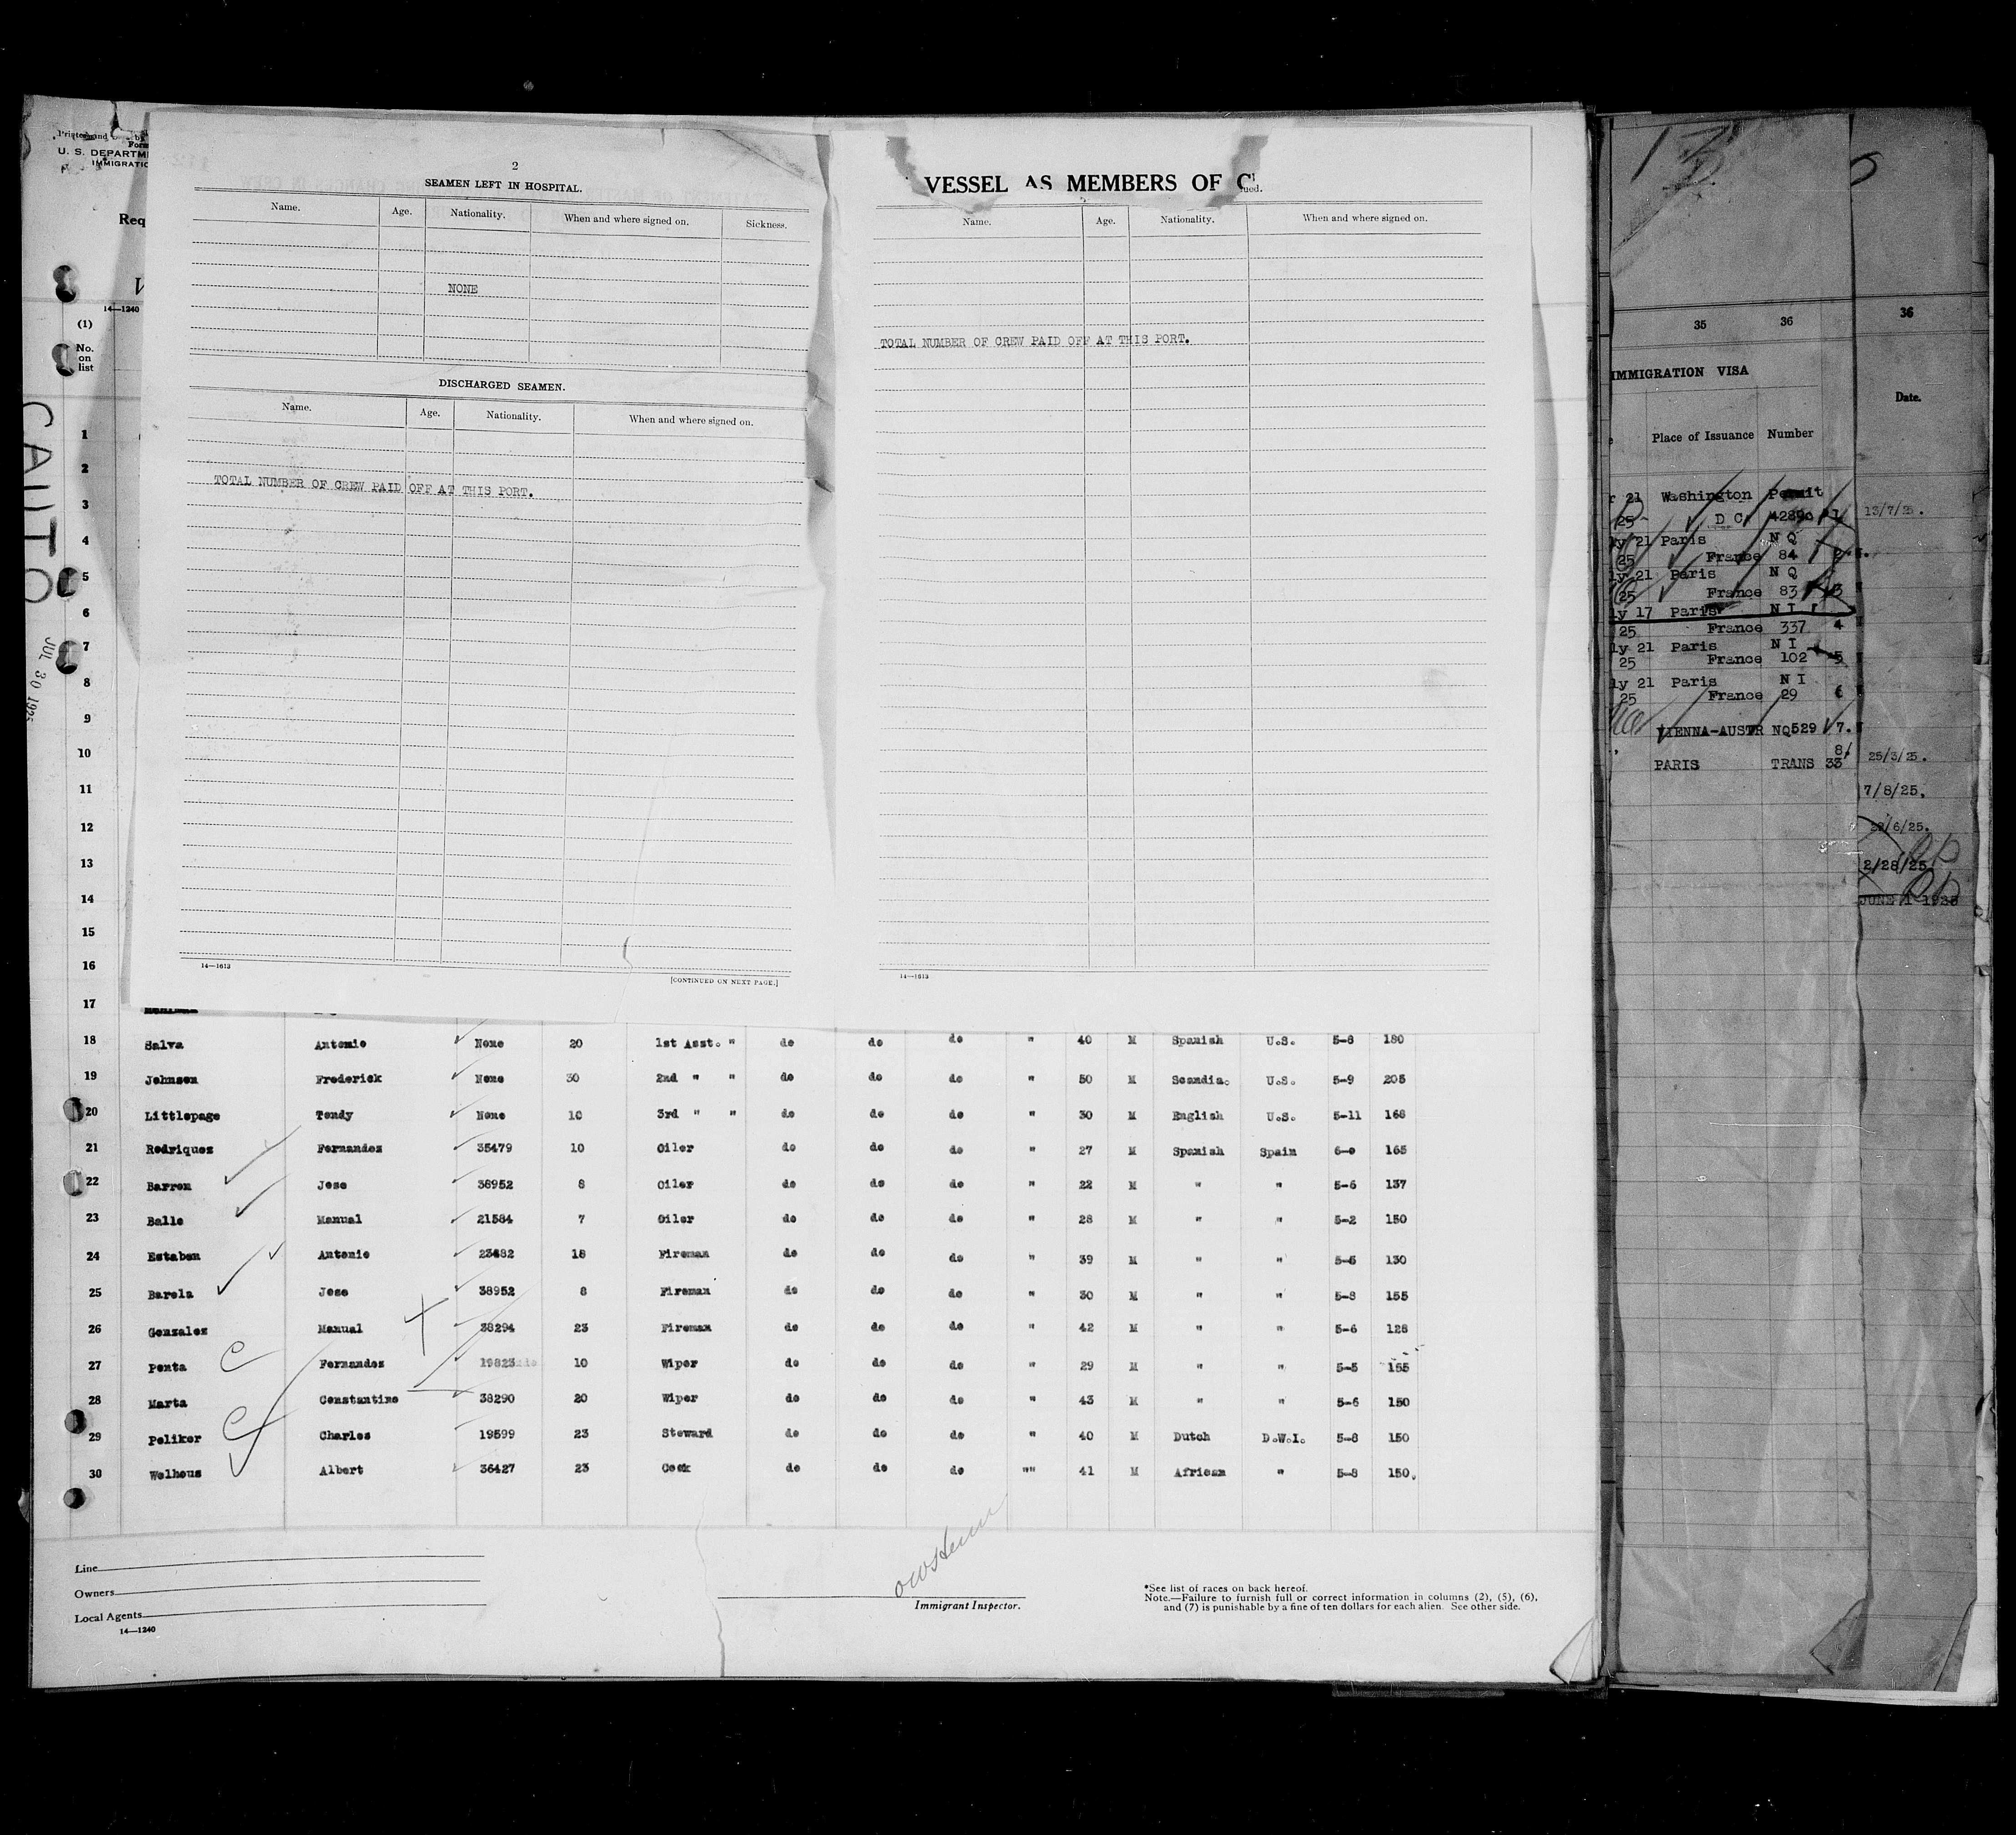 U. S. DEPARTME
IMMIGRATIO
Req
14—1240
(1)
No.
on
list
CAUTO
JUL 30 192
2
SEAMEN LEFT IN HOSPITAL.
Name. Age. Nationality. When and where signed on. Sickness.
NONE
DISCHARGED SEAMEN.
Name. Age. Nationality. When and where signed on.
TOTAL NUMBER OF CREW PAID OFF AT THIS PORT.
14—1613
[CONTINUED ON NEXT PAGE.]
VESSEL AS MEMBERS OF C
ued.
Name. Age. Nationality. When and where signed on.
TOTAL NUMBER OF CREW PAID OFF AT THIS PORT.
14—1613
1
2
3
4
5
6
7
8
9
10
11
12
13
14
15
16
17
18 Salva Antonio None 20 1st Asst. " do do do " 40 M Spanish U.S. 5-8 180
19 Johnson Frederick None 30 2nd " " do do do " 50 M Scandia. U.S. 5-9 205
20 Littlepage Tendy None 10 3rd " " do do do " 30 M English U.S. 5-11 168
21 Rodriquez Fernandez 35479 10 Oiler do do do " 27 M Spanish Spain 6-0 165
22 Barron Jose 38952 8 Oiler do do do " 22 M " " 5-6 137
23 Balle Manual 21584 7 Oiler do do do " 28 M " " 5-2 150
24 Estaban Antonio 23482 18 Fireman do do do " 39 M " " 5-5 130
25 Barela Jose 38952 8 Fireman do do do " 30 M " " 5-8 155
26 Gonzalez Manual 38294 23 Fireman do do do " 42 M " " 5-6 128
27 Penta Fernandez 19823 10 Wiper do do do " 29 M " " 5-5 155
28 Marta Constantino 38290 20 Wiper do do do " 43 M " " 5-6 150
29 Peliker Charles 19599 23 Steward do do do " 40 M Dutch D.W.I. 5-8 150
30 Welhous Albert 36427 23 Cook do do do "" 41 M African " 5-8 150.
Line
Owners
Local Agents
14—1240
Immigrant Inspector.
*See list of races on back hereof.
Note.—Failure to furnish full or correct information in columns (2), (5), (6),
and (7) is punishable by a fine of ten dollars for each alien. See other side.
13
35 36
IMMIGRATION VISA
Place of Issuance Number
r 21 Washington Permit
25 D C. 42890 1
ly 21 Paris N Q
25 France 84 2
ly 21 Paris N Q
25 France 83 3
ly 17 Paris N I
25 France 337 4
ly 21 Paris N I
25 France 102 5
ly 21 Paris N I
25 France 29 6
VIENNA-AUSTR NQ529 7.
8
PARIS TRANS 33
36
Date.
13/7/25.
25/3/25.
7/8/25.
/6/25.
2/28/25.
JUNE 1 1925